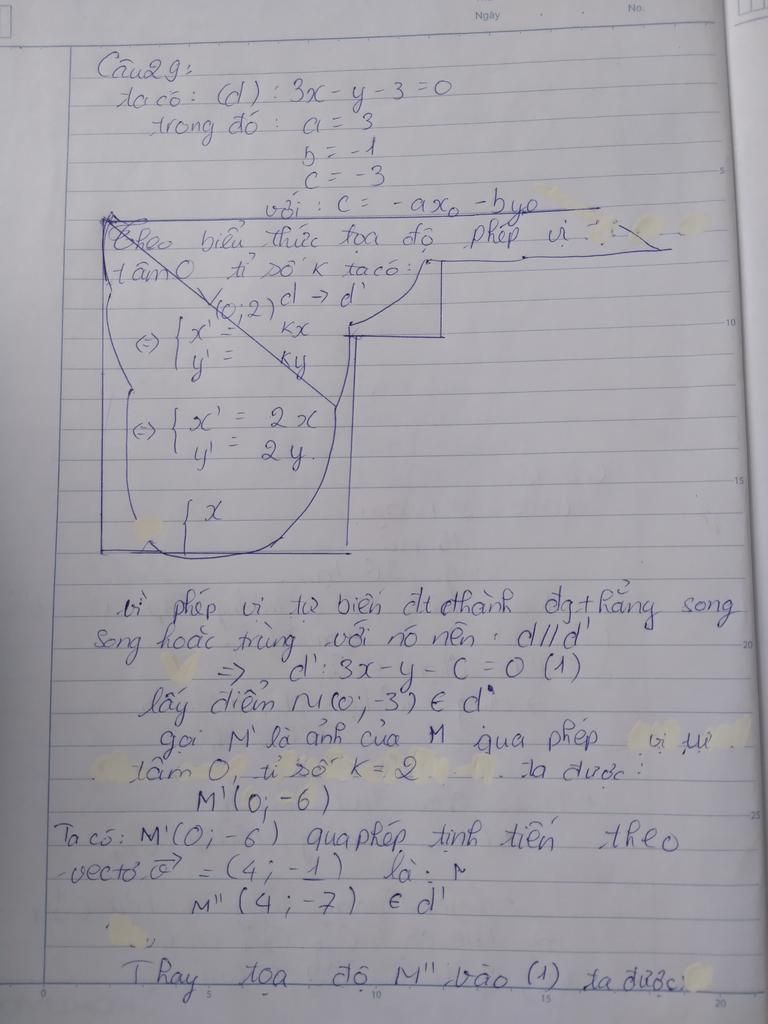 Ngày
No.
Câu 29:
ta có: (d) : 3x - y - 3 = 0
trong đó: a = 3
b = -1
c = -3
với : c = -ax₀ - by₀
theo biểu thức tọa độ phép vị
tâm O tỉ số K ta có:
V(0;2) d → d'
⇔ { x' = kx
y' = ky
⇔ { x' = 2x
y' = 2y.
{ x
vì phép vị tự biến đt thành đg thẳng song
song hoặc trùng với nó nên : d // d'
=> d' : 3x - y - C = 0 (1)
lấy điểm M(0; -3) ∈ d'
gọi M' là ảnh của M qua phép vị tự
tâm O, tỉ số K = 2 ta được :
M'(0; -6)
Ta có: M'(0; -6) qua phép tịnh tiến theo
vectơ v⃗ = (4; -1) là :
M'' (4; -7) ∈ d'
Thay tọa độ M'' vào (1) ta được:
5
10
15
20
25
0 5 10 15 20